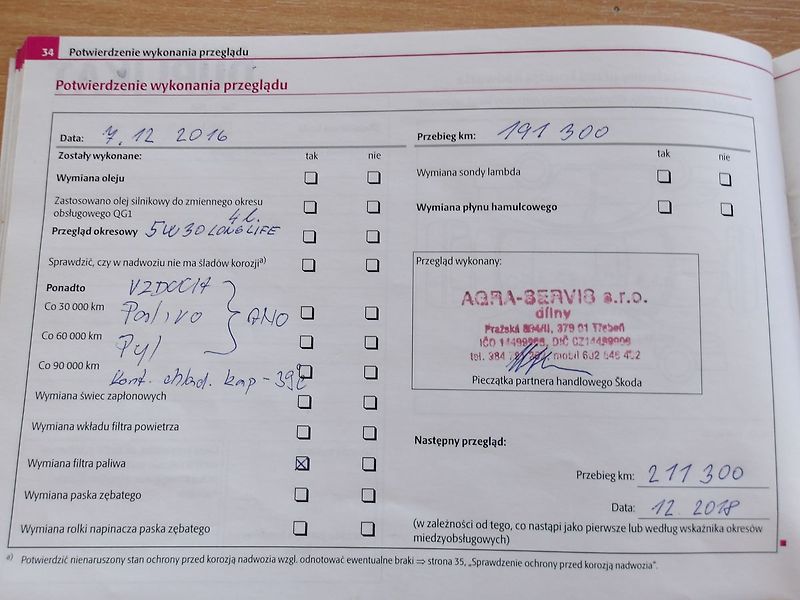 34 Potwierdzenie wykonania przeglądu
Potwierdzenie wykonania przeglądu
Data: 7.12 2016
Zostały wykonane: tak nie
Wymiana oleju
Zastosowano olej silnikowy do zmiennego okresu
obsługowego QG1 4 l.
Przegląd okresowy 5W30 LONGLIFE
Sprawdzić, czy w nadwoziu nie ma śladów korozji a)
Ponadto VZDUCH
Co 30 000 km Palivo ANO
Co 60 000 km Pyl
Co 90 000 km
Kont. chlad. kap - 39°C
Wymiana świec zapłonowych
Wymiana wkładu filtra powietrza
Wymiana filtra paliwa
Wymiana paska zębatego
Wymiana rolki napinacza paska zębatego
Przebieg km: 191 300
tak nie
Wymiana sondy lambda
Wymiana płynu hamulcowego
Przegląd wykonany:
AGRA-SERVIS s.r.o.
dílny
Pražská /II, 379 01 Třeboň
IČO DIČ
tel. 384 mobil 602
Pieczątka partnera handlowego Škoda
Następny przegląd:
Przebieg km: 211 300
Data: 12. 2018
(w zależności od tego, co nastąpi jako pierwsze lub według wskaźnika okresów
miedzyobsługowych)
a) Potwierdzić nienaruszony stan ochrony przed korozją nadwozia wzgl. odnotować ewentualne braki ⇒ strona 35, „Sprawdzenie ochrony przed korozją nadwozia".